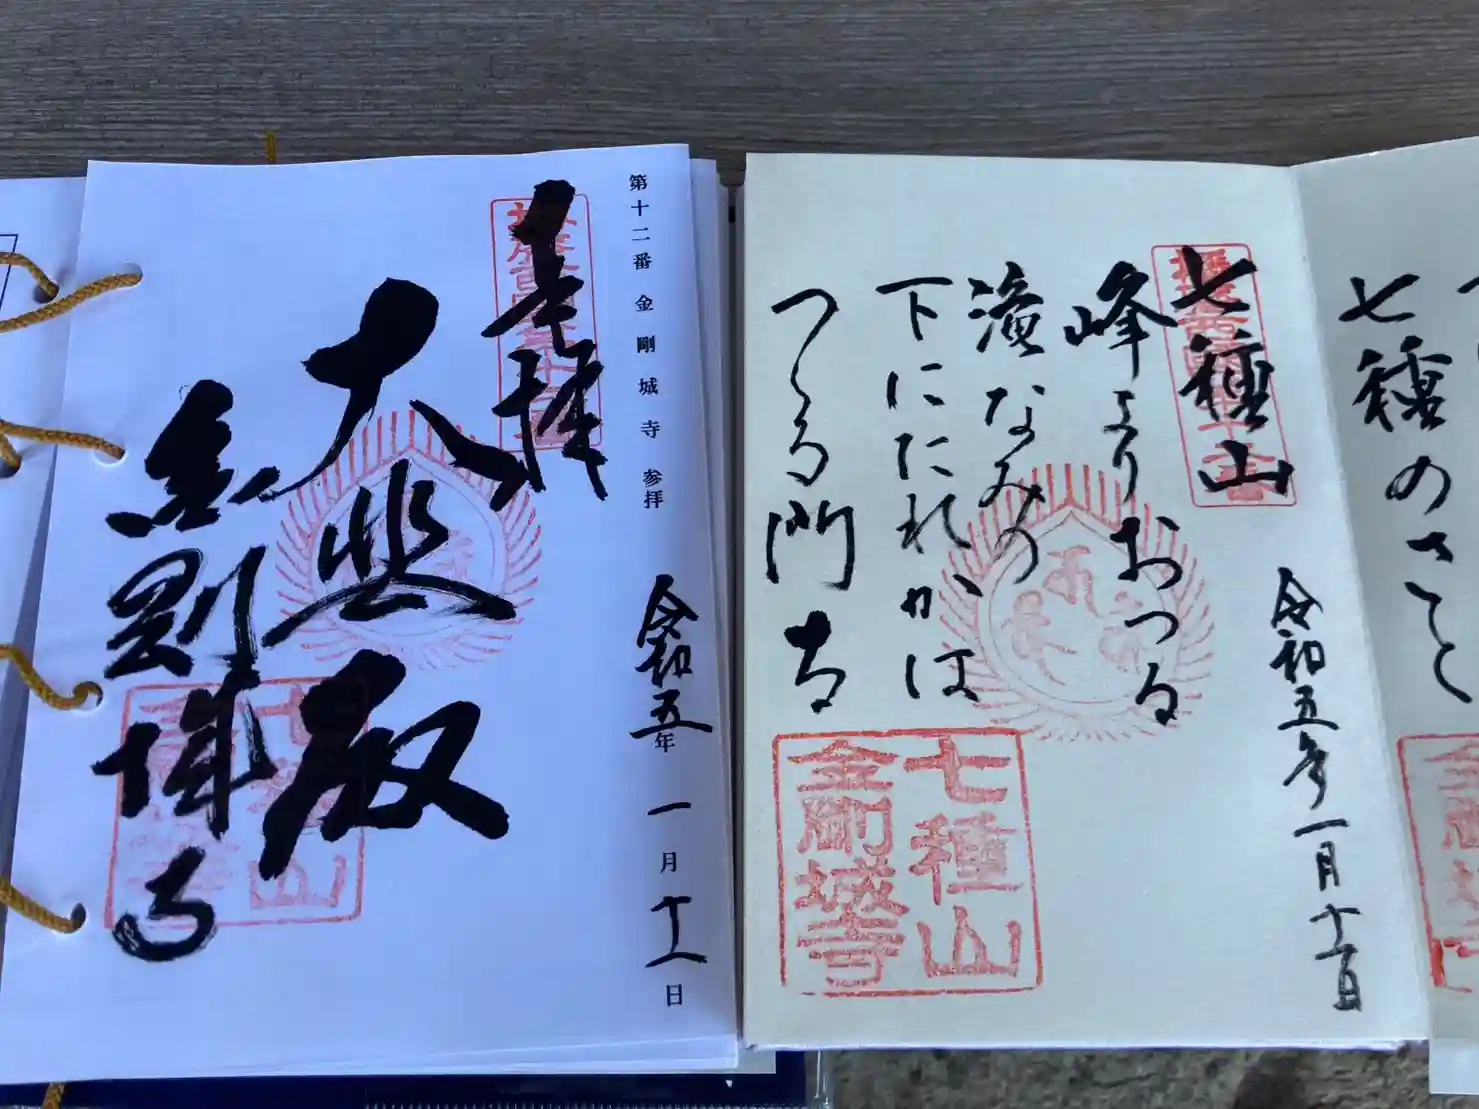 第十二番 金剛城寺 参拝
奉拝
令和五年 一月 十一日
大悲殿
金剛城寺
七種山
金剛城寺
七種山
峰よりおつる
滝なみの
下にたれかは
つくる門
令和五年一月十一日
七種山
金剛城寺
七種のさと